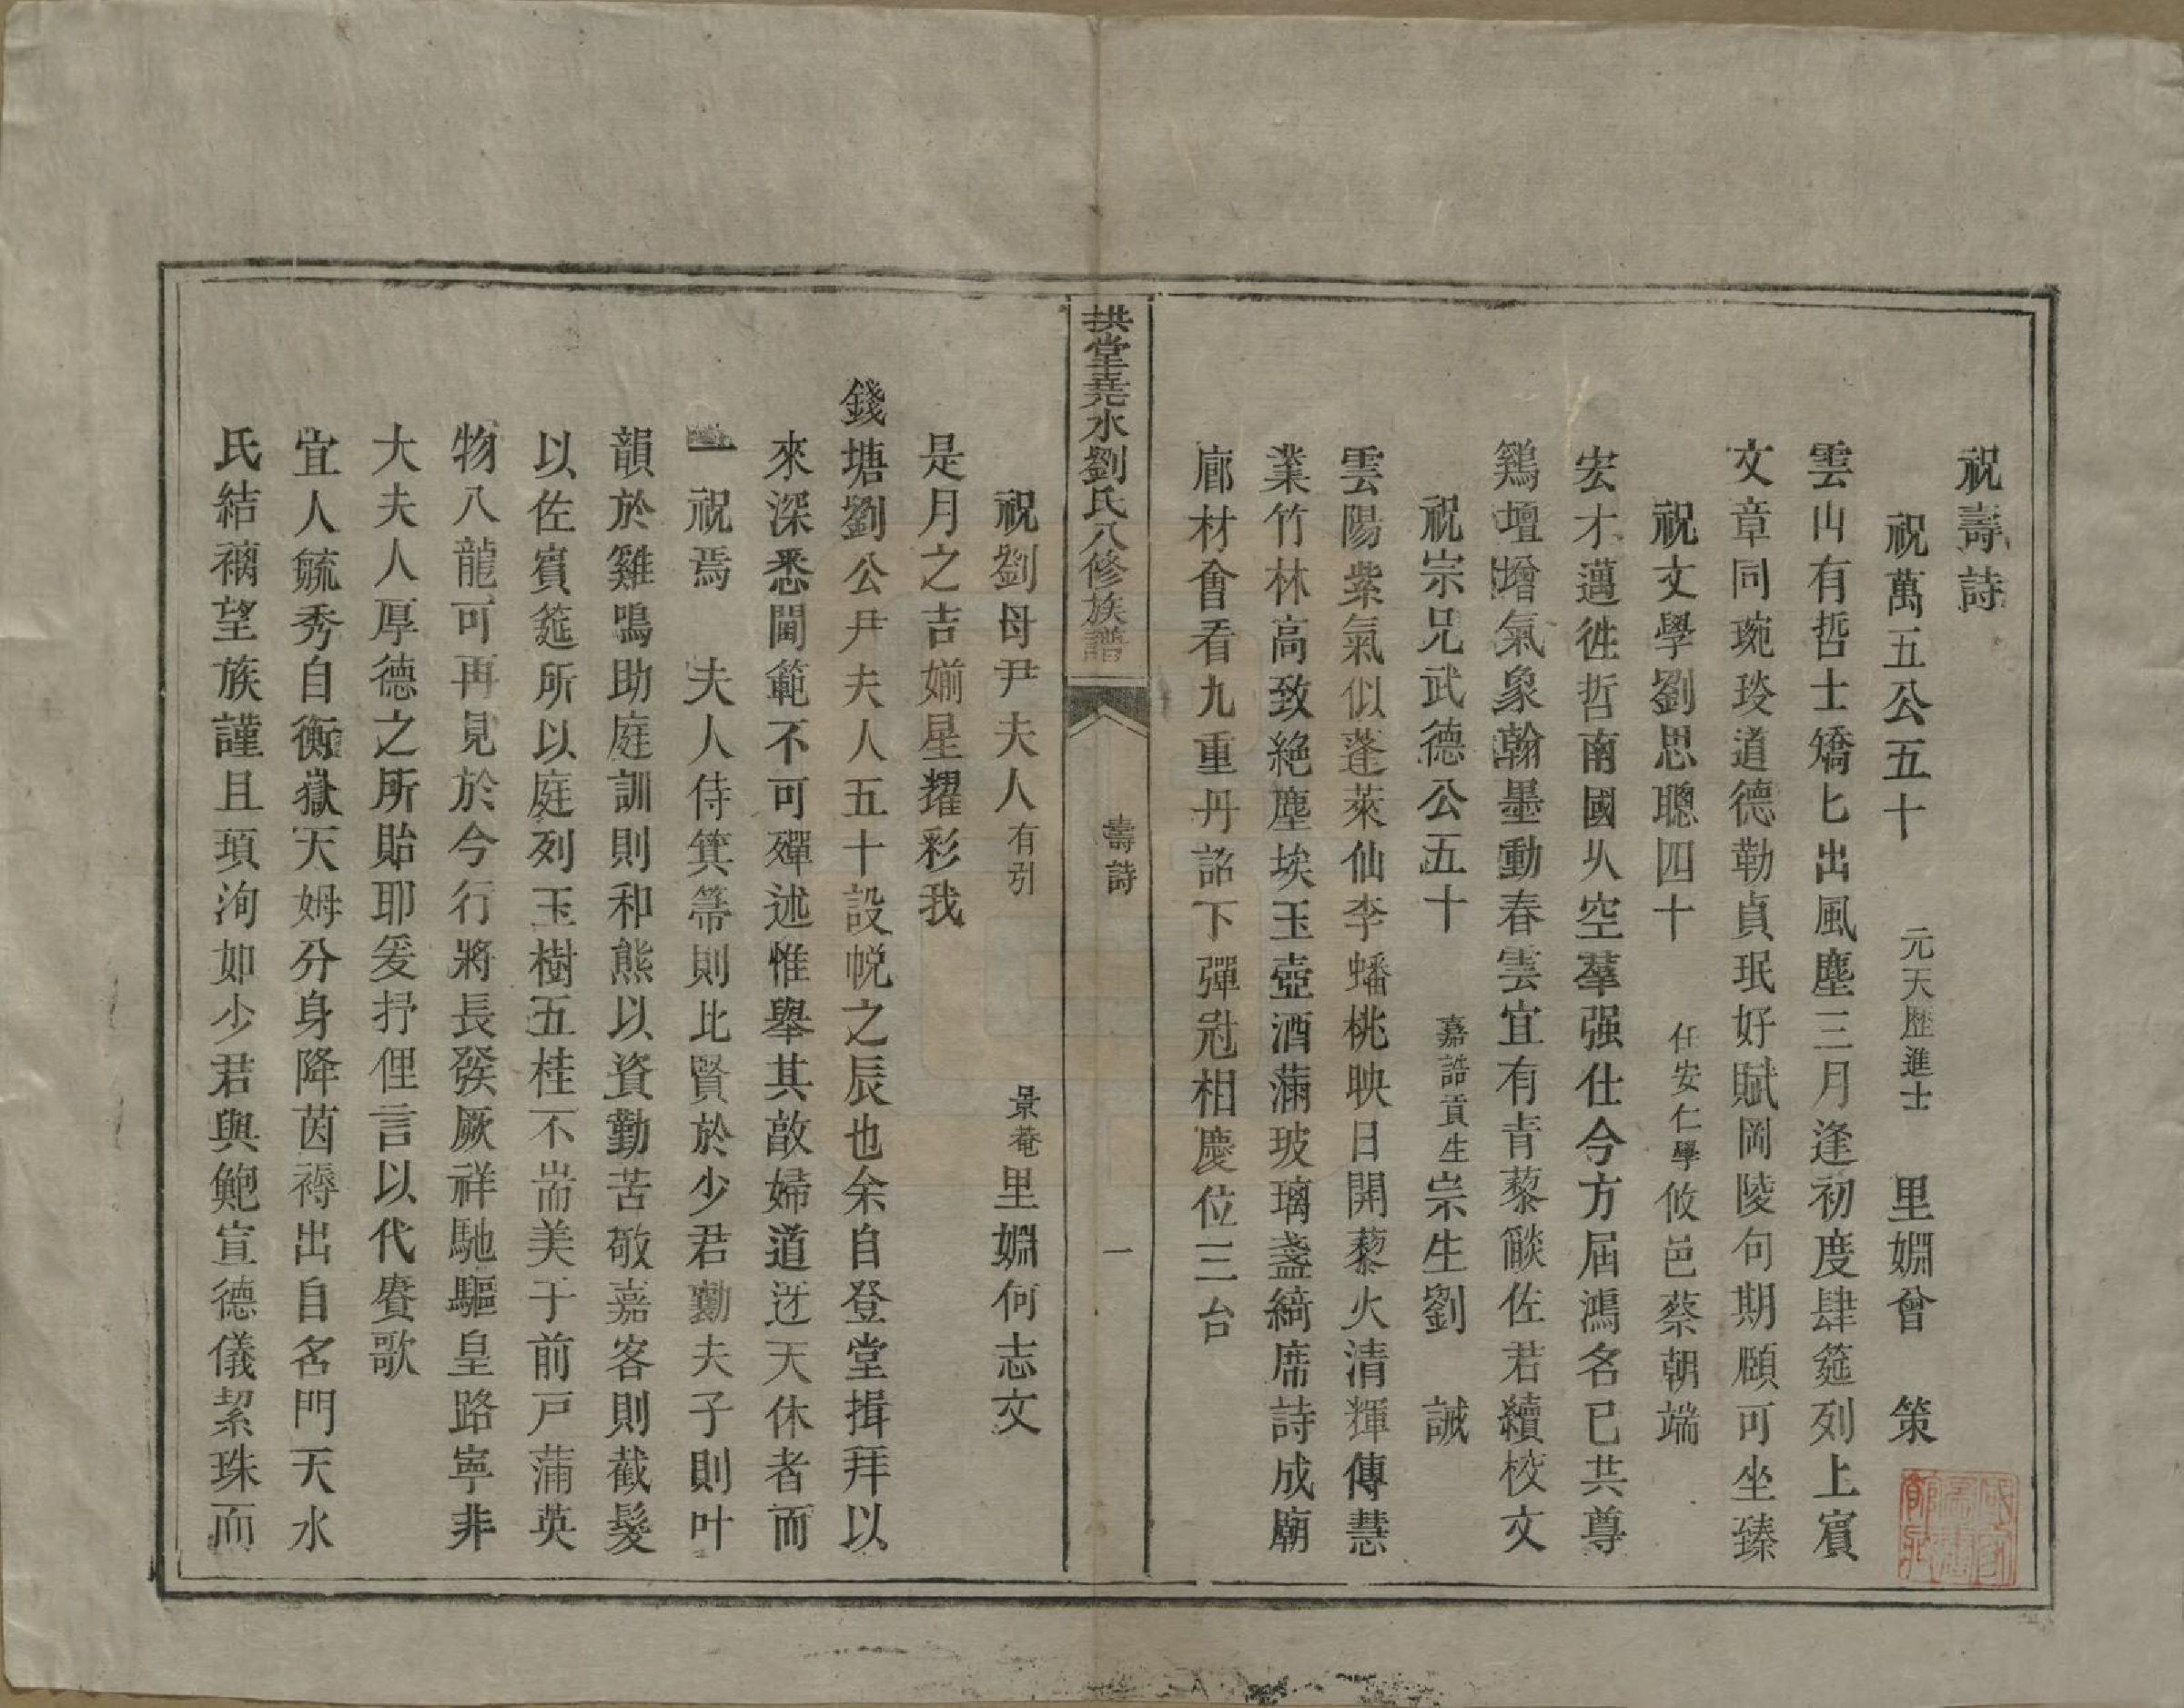 祝壽詩
祝萬五公五十 元天歷進士 里婣曾 策
雲山有哲士矯匕出風塵三月逢初度肆筵列上賓
文章同琬琰道德勒貞珉好賦岡陵句期頤可坐臻
祝文學劉思聰四十 任安仁學 攸邑蔡朝端
宏才邁徃哲南國乆空羣强仕今方屆鴻名已共尊
鷄壇增氣象翰墨動春雲宜有青藜燄佐君續校文
祝宗兄武德公五十 嘉誥貢生 宗生劉 誠
雲陽紫氣似蓬萊仙李蟠桃映日開藜火清輝傳慧
業竹林高致絶塵埃玉壺酒滿玻璃盞綺席詩成廟
廊材會看九重丹詔下彈冠相慶位三台
拱堂莌水劉氏八修族譜 壽詩 一
祝劉母尹夫人 有引 景菴 里婣何志文
是月之吉婻星耀彩我
錢塘劉公尹夫人五十設帨之辰也余自登堂揖拜以
來深悉閫範不可殫述惟舉其敵婦道迓天休者而
一祝焉 夫人侍箕箒則比賢於少君勷夫子則叶
韻於雞鳴助庭訓則和熊以資勤苦敬嘉客則截髮
以佐賓筵所以庭列玉樹五桂不耑美于前戸蒲英
物八龍可再見於今行將長發厥祥馳驅皇路寧非
大夫人厚德之所貽耶爰抒俚言以代賡歌
宜人毓秀自衡嶽天姆分身降茵褥出自名門天水
氏結褵望族謹且頊洵如少君與鮑宣德儀絜珠而